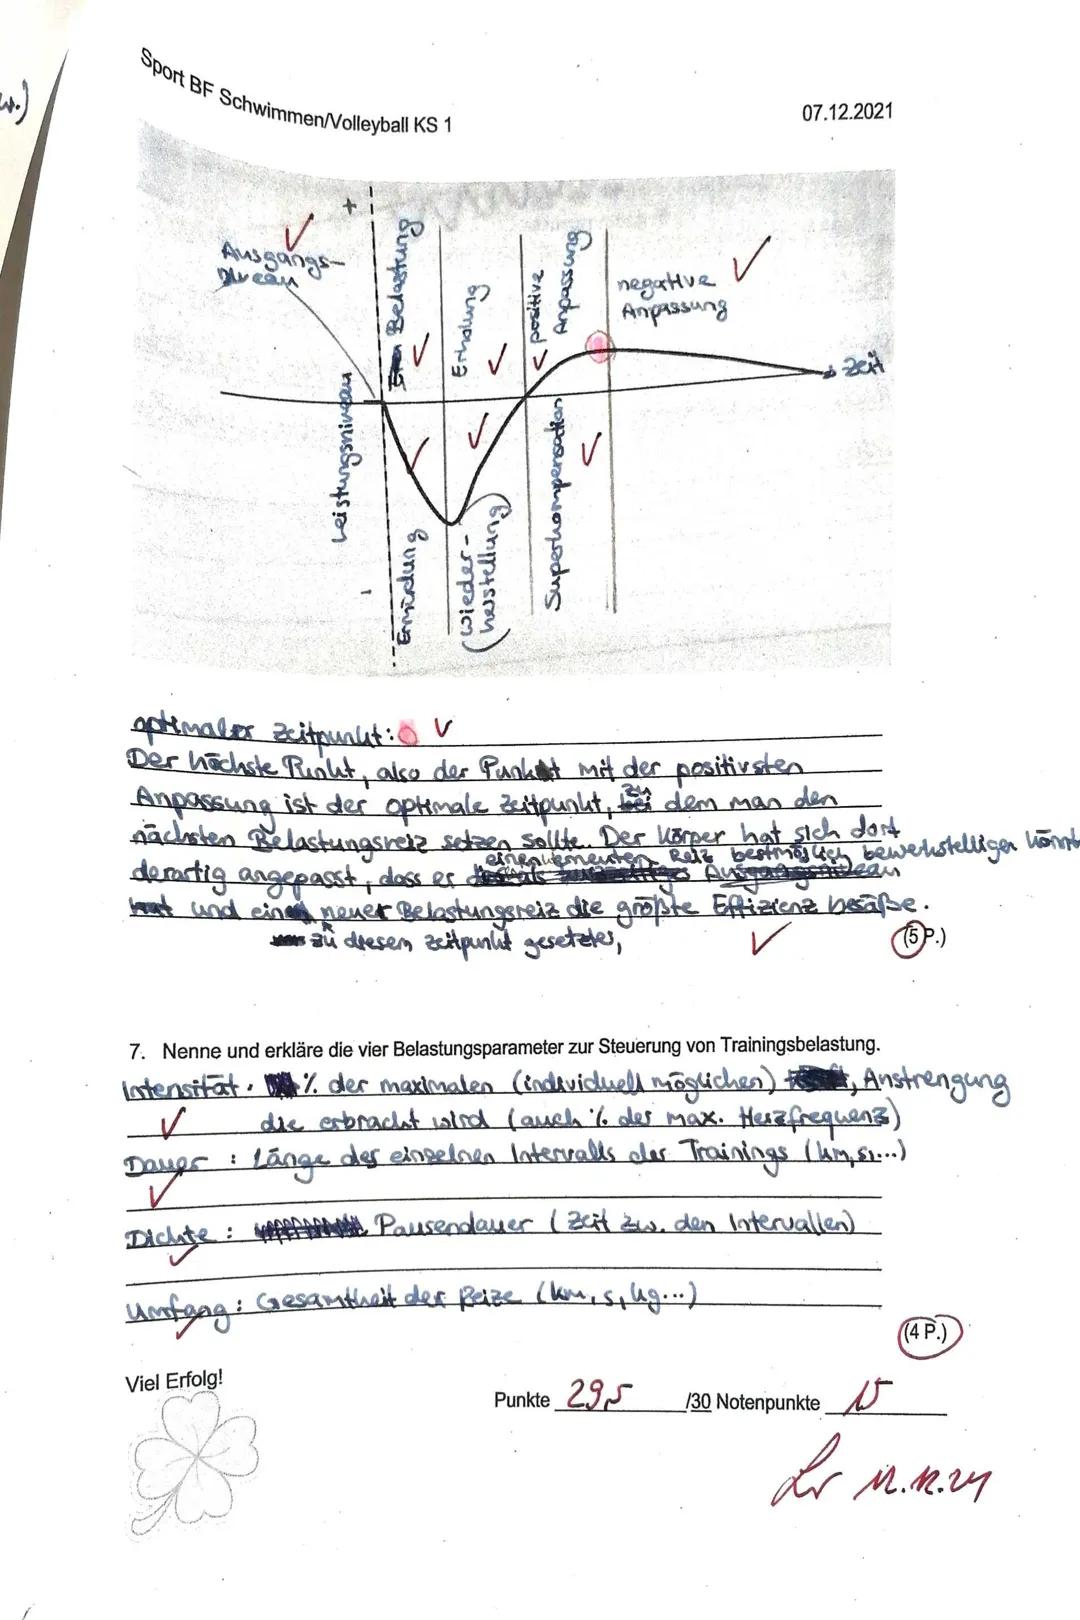 w.)
Sport BF Schwimmen/Volleyball KS 1
07.12.2021
+
Ausgangs-
niveau
Belastung
Erholung
positive
Anpassung
negative
Anpassung
Zeit
Leistungsniveau
-
Ermüdung
(Wieder-
herstellung)
Superkompensation
optimaler Zeitpunkt:
Der höchste Punkt, also der Punkt mit der positivsten
Anpassung ist der optimale Zeitpunkt, zu dem man den
nächsten Belastungsreiz setzen sollte. Der Körper hat sich dort
einen erneuten Reiz bestmöglich bewerkstelligen könnte
derartig angepasst, dass er
und ein neuer Belastungsreiz die größte Effizienz besäße.
zu diesem Zeitpunkt gesetzter,
(5 P.)
7. Nenne und erkläre die vier Belastungsparameter zur Steuerung von Trainingsbelastung.
Intensität: % der maximalen (individuell möglichen) Anstrengung
die erbracht wird (auch % der max. Herzfrequenz)
Dauer : Länge des einzelnen Intervalls des Trainings (km, s,...)
Dichte : Pausendauer (Zeit zw. den Intervallen)
Umfang : Gesamtheit der Reize (km, s, kg...)
(4 P.)
Viel Erfolg!
Punkte 29,5 /30 Notenpunkte 15
12.12.21